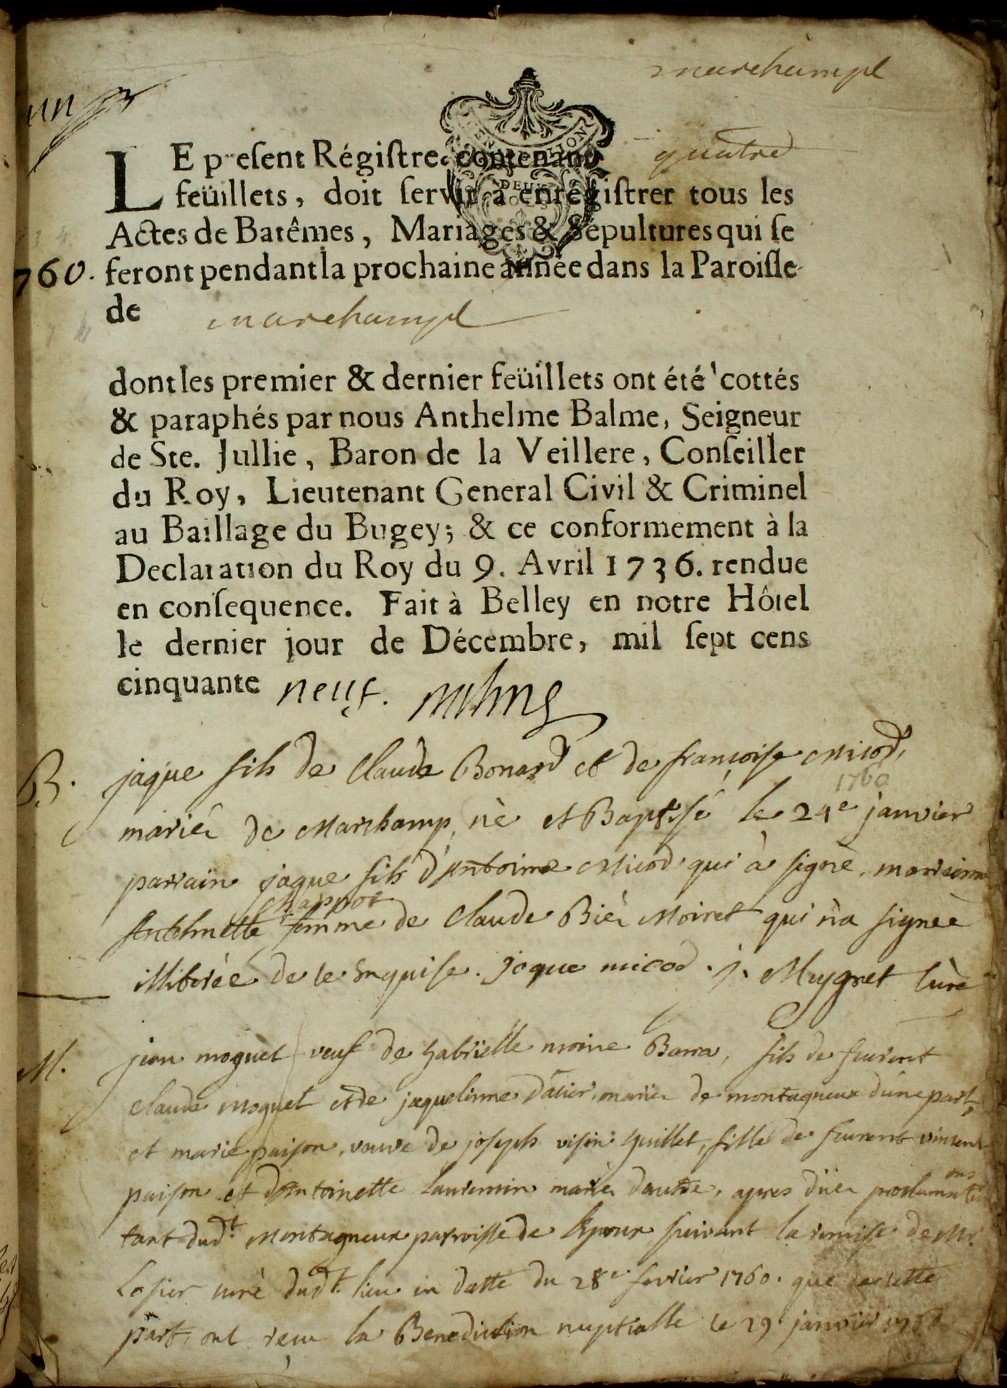 marchampt
LE present Régistre contenant quatre
feüillets, doit servir à enregistrer tous les
Actes de Batêmes, Mariages & Sépultures qui se
760. feront pendant la prochaine année dans la Paroisse
de marchampt
dont les premier & dernier feüillets ont été cottés
& paraphés par nous Anthelme Balme, Seigneur
de Ste. Jullie, Baron de la Veillere, Conseiller
du Roy, Lieutenant General Civil & Criminel
au Baillage du Bugey; & ce conformement à la
Declaration du Roy du 9. Avril 1736. rendue
en consequence. Fait à Belley en notre Hôtel
le dernier jour de Décembre, mil sept cens
cinquante neuf.
B. jaque fils de Claude Bonard et de françoise Micod,
1760
mariés de Marchamp, né et Baptisé le 24e janvier
parrain jaque fils d'Antoine Micod qui à signé, marraine
Chappot
Anthelmette femme de Claude Bié Moiret qui n'a signée
illiterée de ce enquise. jaque micod. j. Muygnet Curé
M. jean moguet veuf de Gabrielle moine Barra, fils de feurent
Claude moguet et de jaquelinne Datier, mariés de montagneux d'une part,
et marie paison, veuve de joseph visin Guillet, fille de feurent vincent
paison et d'Antoinette Laurencin mariés d'autre, apres düe proclamations
tant dudt. Montagneux parroisse de suivant la remise de Mr.
curé dudt. lieu en datte du 28e fevrier 1760. que de cette
part, ont reçu la Benediction nuptialle le 29 janvier 1760